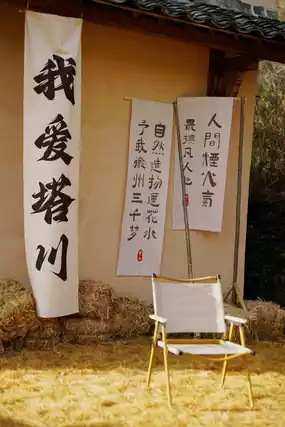 我爱塔川
自然造物莲花水
予我徽州三千梦
人間煙火氣
最撫凡人心